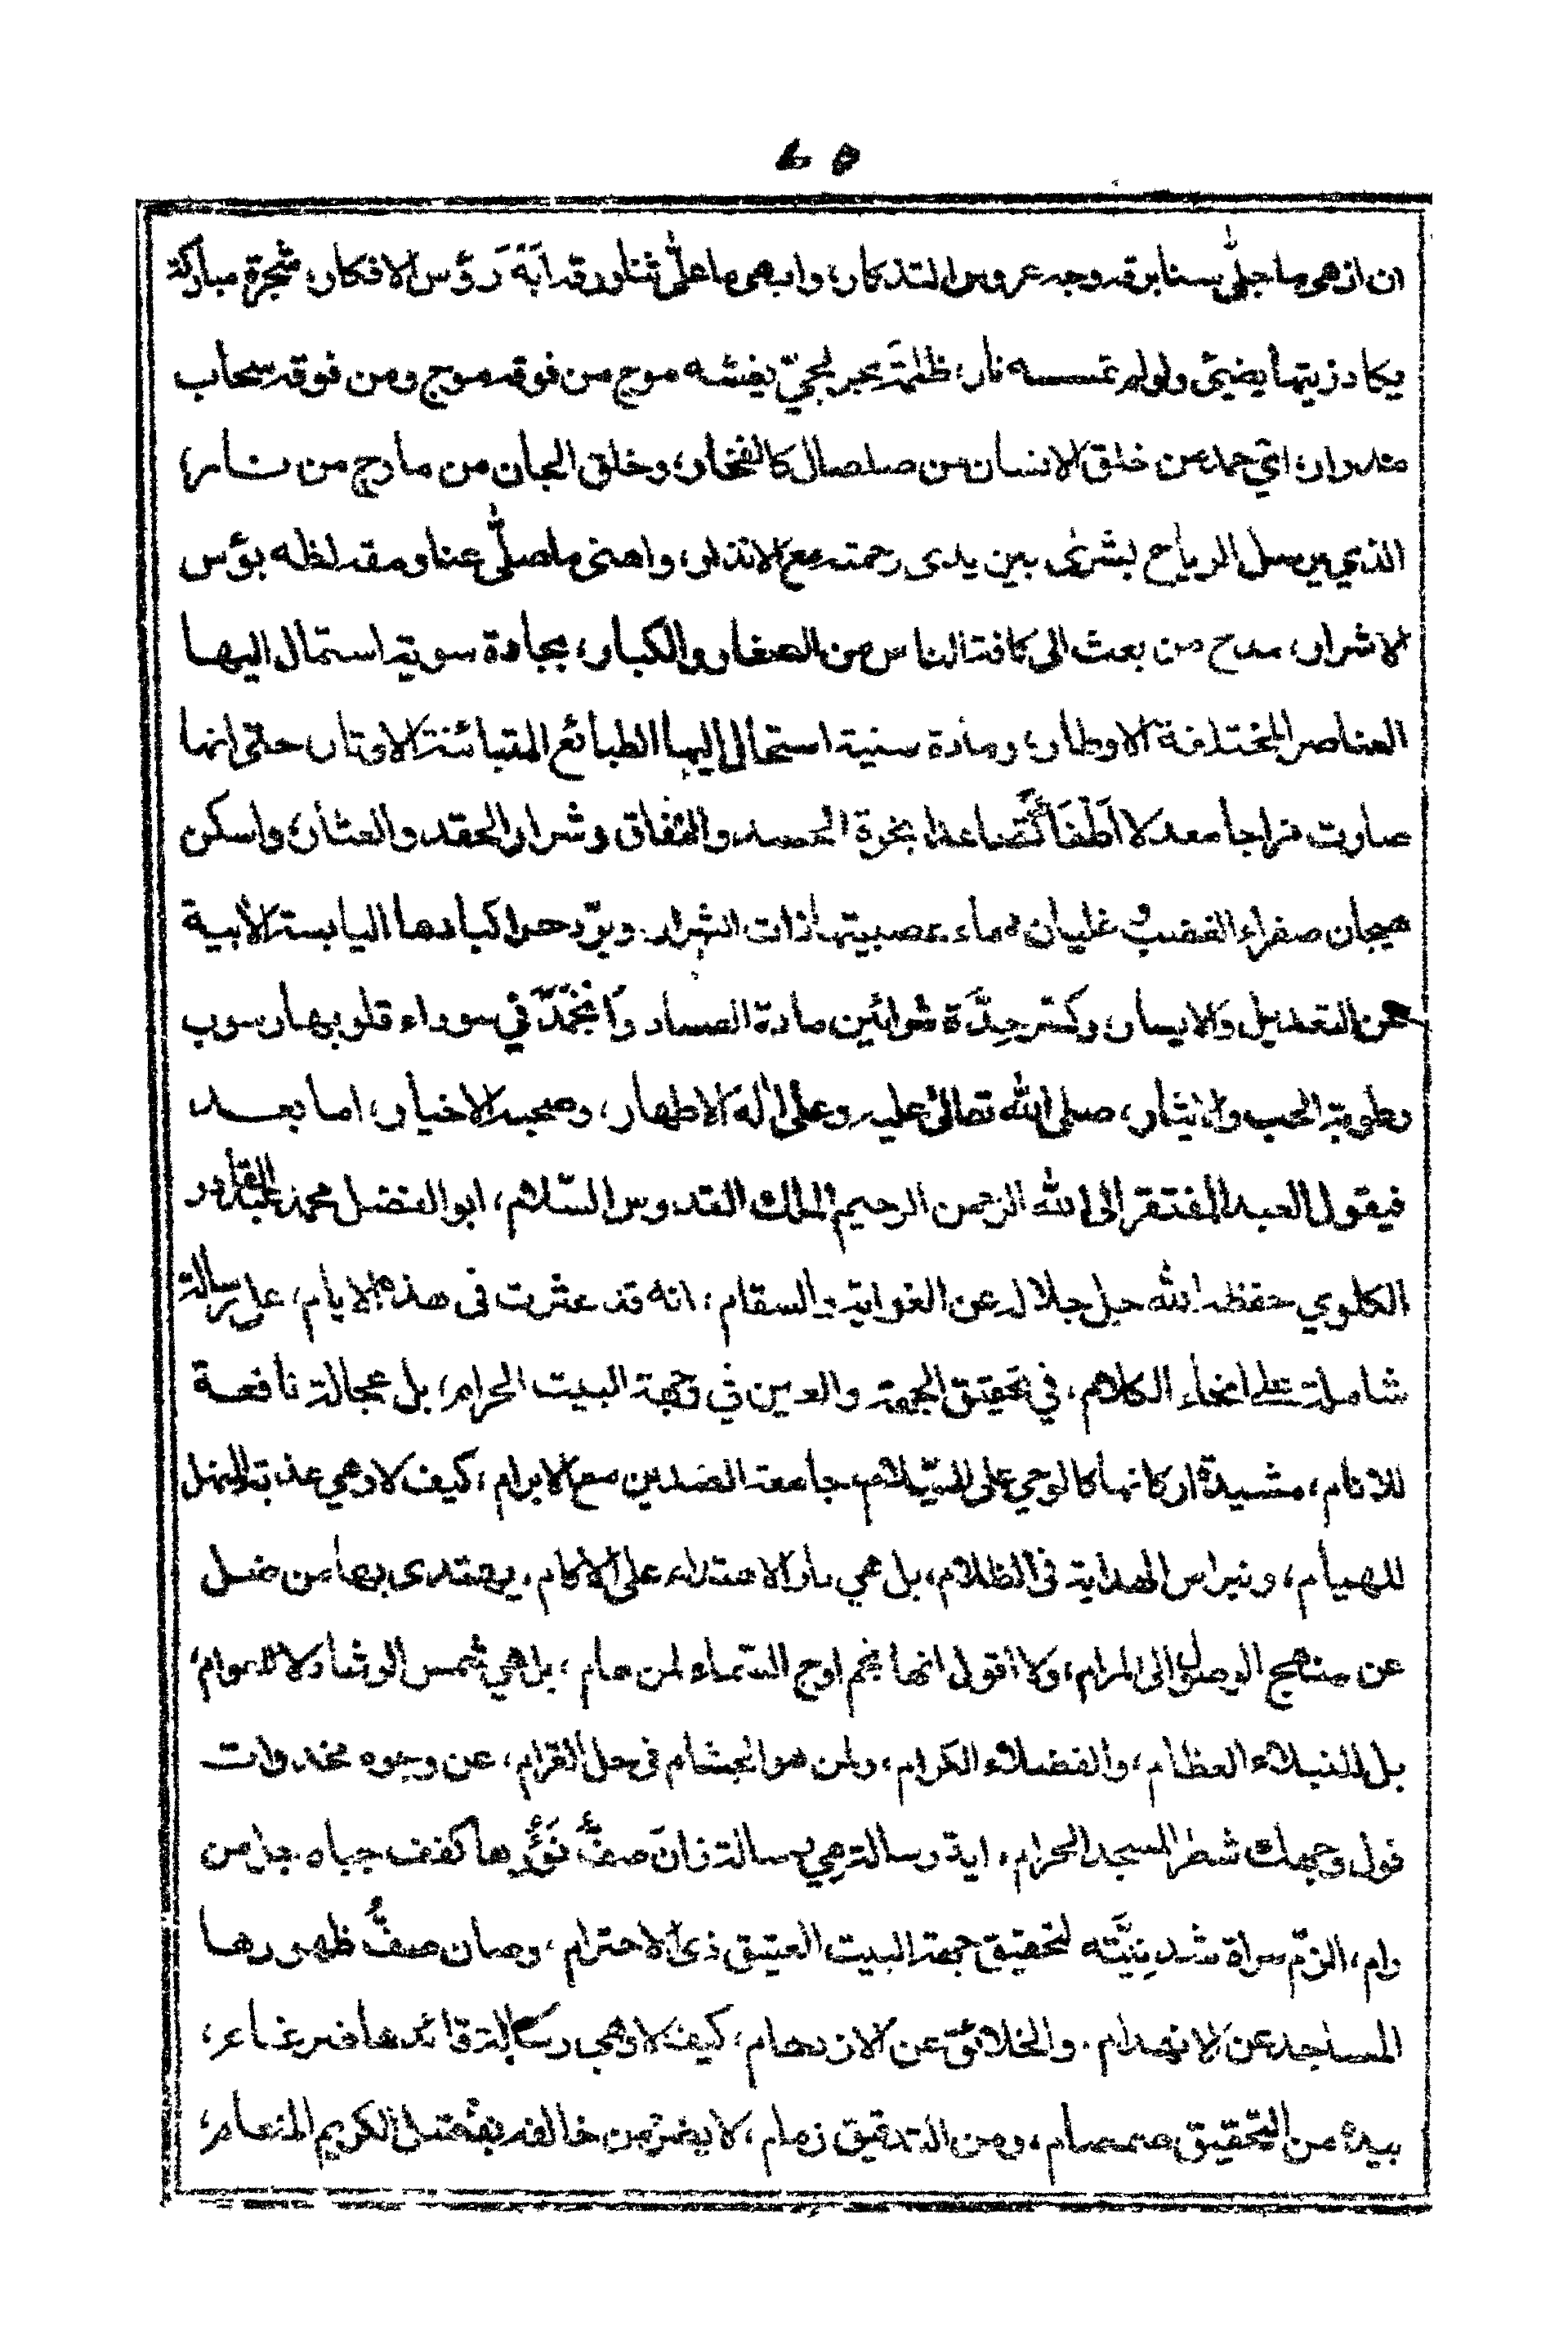 ٤٥
ان ازهى ما جلّى بسنا برقه وجه عروس التذكار، وابهى ما علّى ثناور قدابَةَ رَؤس الافكار، شجرة مباركة
يكاد زيتها يضيئ ولو لم تمسسه نار، ظلمة بحر لجيّ يغشه موج من فوقه موج ومن فوقه سحاب
مدرار، اي حمد من خلق الانسان من صلصال كالفخار، وخلق الجان من مارج من نار،
الذي يرسل الرياح بشرى بين يدى رحمته مع الانذار، واهنى ما صلّى عنا ومقد لظه بؤس
الاشرار، مدح من بعث الى كافة الناس من الصغار والكبار، بجادة سوية استمال اليها
العناصر المختلفة الاوطار، ومادة سنية استحال اليها الطبائع المتبائنة الاوتار حتى انها
صارت مزاجا معدلا اَطْفَأَ تصاعد ابخرة الحسد والنفاق وشرار الحقد والعثار، واسكن
هيجان صفراء الغضب و غليان دماء عصبيتها ذات الشرار. وبرّد حر اكبادها اليابسة الأبية
عن التعديل والايسار، وكسر حِدَّة شرائين مادة الفساد وَانْجَمَدَ في سوداء قلوبها رسوب
رطوبة الحب والايثار، صلى الله تعالى عليه وعلى اٰله الاطهار، وصحبه الاخيار، اما بعد
فيقول العبد المفتقر الى الله الرحمن الرحيم الملك القدوس السّلام، ابو الفضل محمد عبد القادر
الكلوي حفظه الله جل جلاله عن الغواية والسقام، انه قد عثرت فى هذه الايام، على رسالة
شاملة على انحاء الكلام، في تحقيق الجهة والعين في وجهة البيت الحرام، بل عجالة نافعة
للانام، مشيدة اركانها كالوحي على السّلام، جامعة الضدين مع الابرام، كيف لا وهي عذبة المنهل
للهيام، ونبراس الهداية فى الظلام، بل هي نار الاهتداء على الاكام. يهتدى بها من ضل
عن منهج الوصول الى المرام، ولا اقول انها نجم اوج السّماء لمن هام، بل هي شمس الرشاد لا للعوام،
بل للنبلاء العظام، والفضلاء الكرام، ولمن هو الجشام فى حل القرام، عن وجوه مخدرات
فول وجهك شطر المسجد الحرام، اية رسالة هي رسالة زانَ صفُّ نَوْرِها كفف جباه جدامن
رام، الزمّ سراة شد بِنِيَّته لتحقيق جهة البيت العتيق ذى الاحترام، وصان صفُّ ظهورها
المساجد عن الانهدام. والخلائق عن الازدحام، كيف لا وهي رسالة قائدها ضرغام،
بيده من التحقيق صمصام، ومن التدقيق زمام، لا يضره من خالفه بفضل الكريم المنعام،